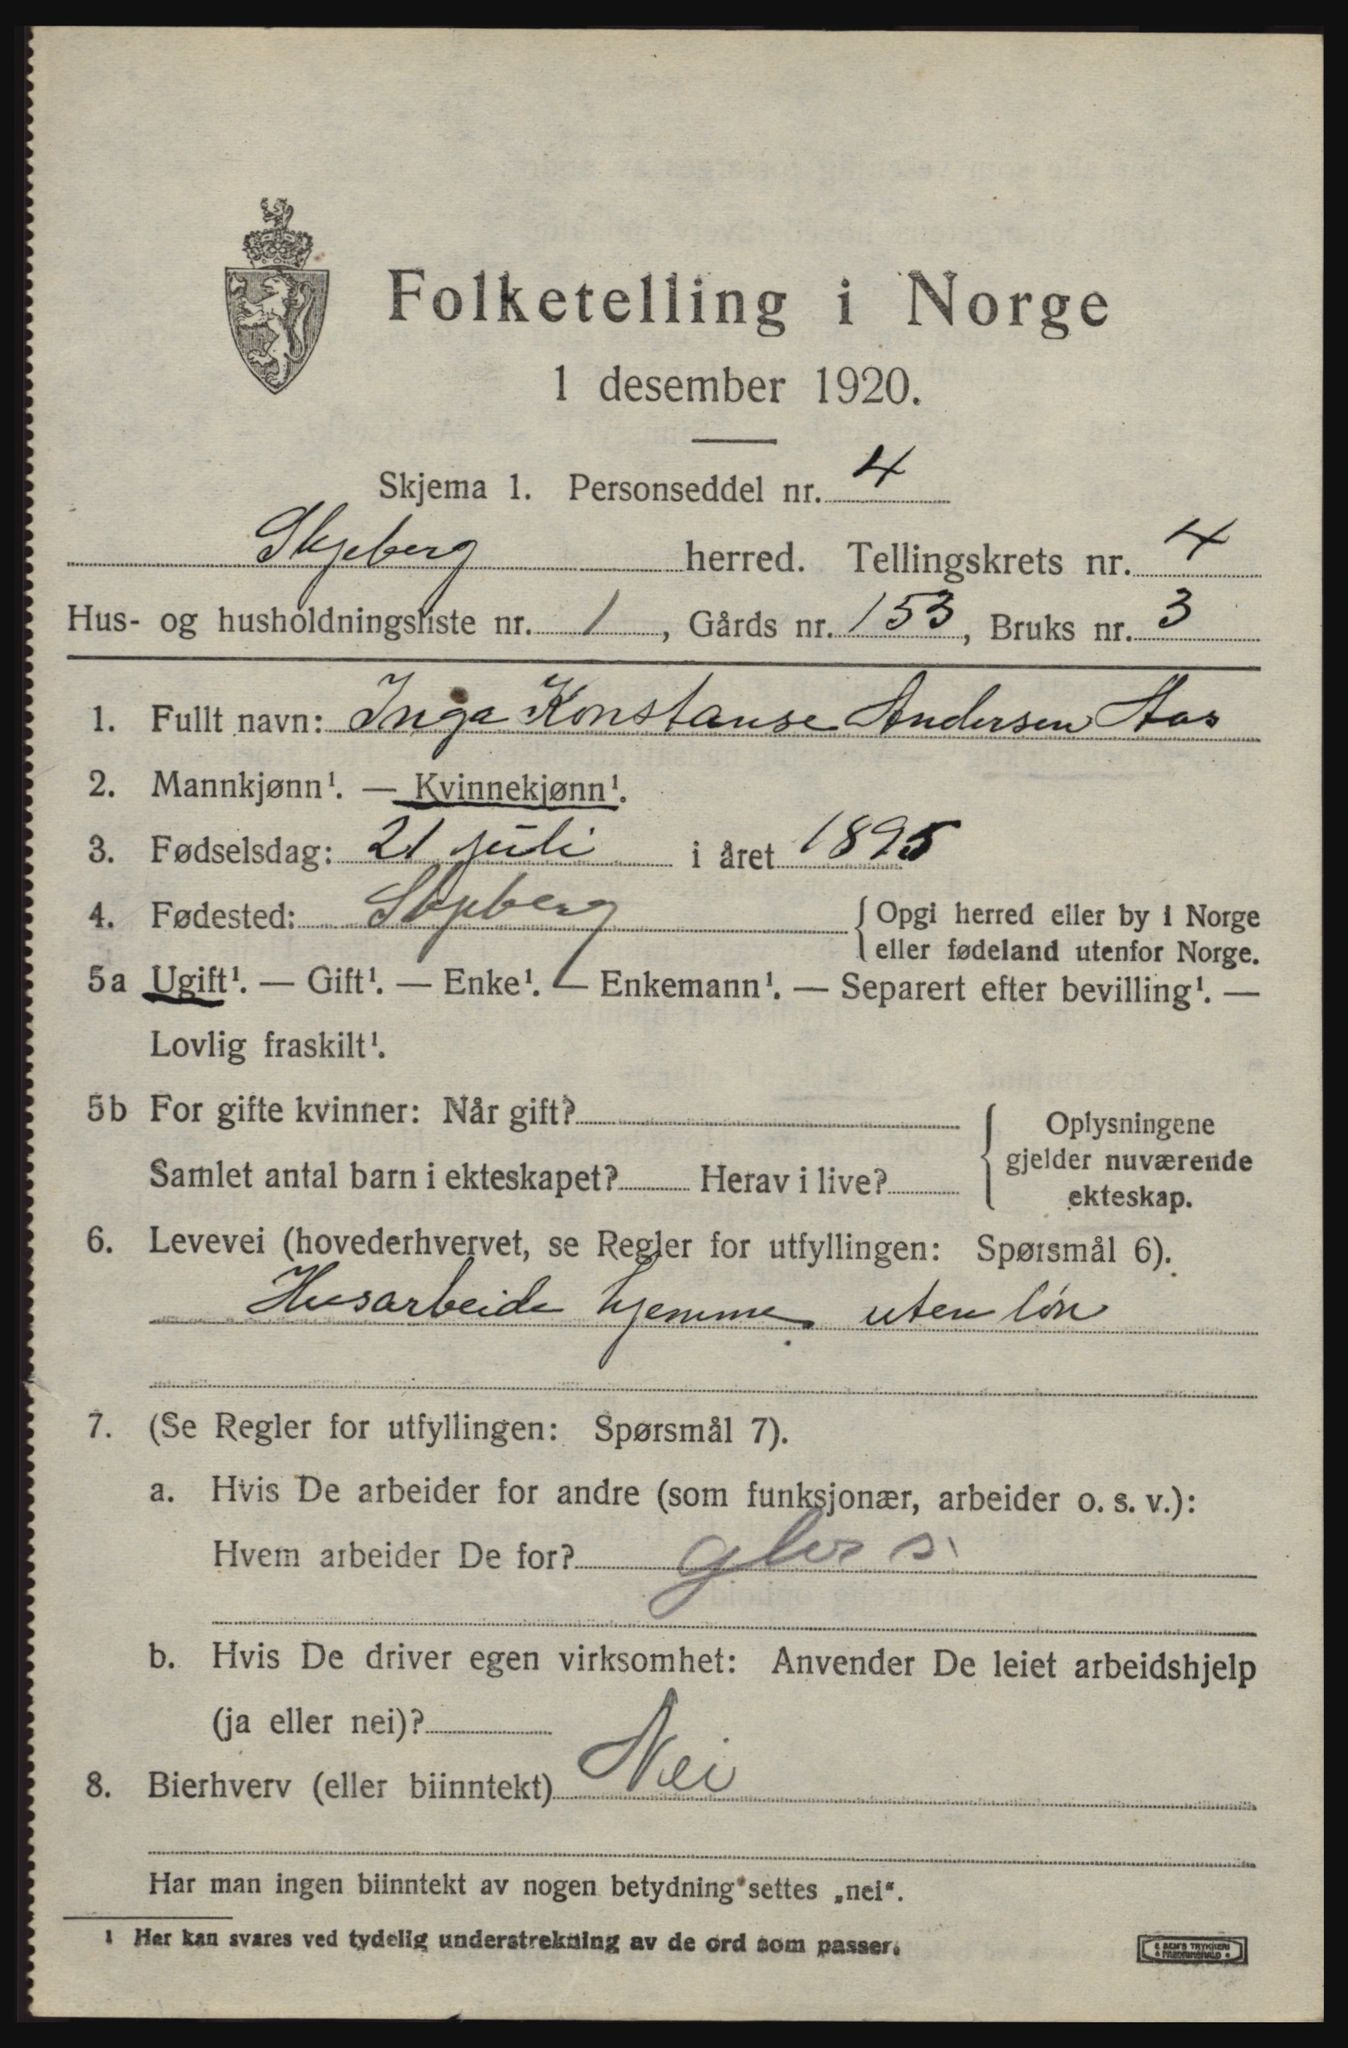 Folketelling i Norge
1 desember 1920.
Skjema 1. Personseddel nr. 4
Skjeberg herred. Tellingskrets nr. 4
Hus- og husholdningsliste nr. 1, Gårds nr. 153, Bruks nr. 3
1. Fullt navn: Inga Konstanse Andersen Aas
2. Mannkjønn¹. — Kvinnekjønn¹.
3. Fødselsdag: 21 juli i året 1895
4. Fødested: Skjeberg { Opgi herred eller by i Norge
eller fødeland utenfor Norge.
5a Ugift¹. — Gift¹. — Enke¹. — Enkemann¹. — Separert efter bevilling¹. —
Lovlig fraskilt¹.
5b For gifte kvinner: Når gift? { Oplysningene
gjelder nuværende
ekteskap.
Samlet antal barn i ekteskapet? Herav i live?
6. Levevei (hovederhvervet, se Regler for utfyllingen: Spørsmål 6).
Husarbeide hjemme uten løn
7. (Se Regler for utfyllingen: Spørsmål 7).
a. Hvis De arbeider for andre (som funksjonær, arbeider o. s. v.):
Hvem arbeider De for?
b. Hvis De driver egen virksomhet: Anvender De leiet arbeidshjelp
(ja eller nei)?
8. Bierhverv (eller biinntekt) Nei
Har man ingen biinntekt av nogen betydning settes „nei“.
1 Her kan svares ved tydelig understrekning av de ord som passer.